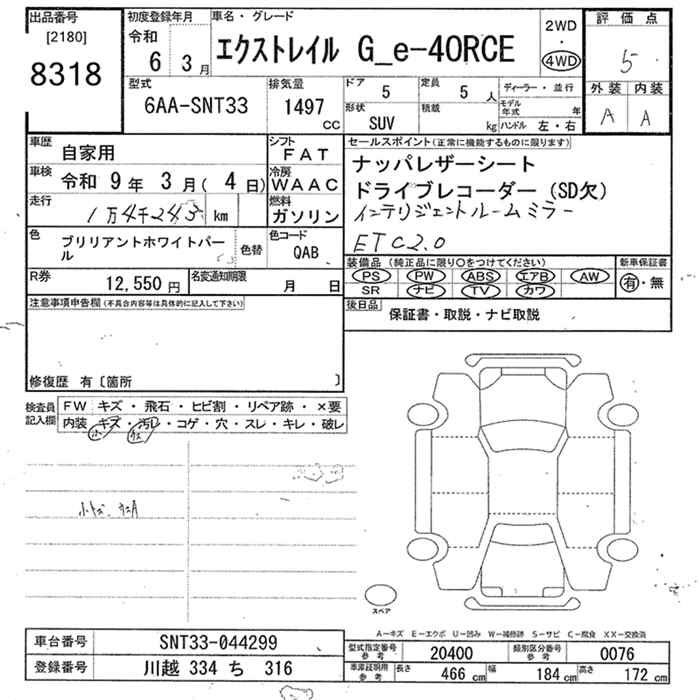 出品番号
[2180]
8318
初度登録年月
令和
6 3月
車名・グレード
エクストレイル G_e-4ORCE
2WD
・
4WD
評価点
5
外装 内装
A A
型式
6AA-SNT33
排気量
1497
CC
ドア
5
定員
5 人
形状
SUV
積載
kg
ディーラー・並行
モデル年式 年
ハンドル 左・右
車歴
自家用
車検
令和 9年 3月(4日)
走行
1万4千243 km
シフト
FAT
冷房
WAAC
燃料
ガソリン
色
ブリリアントホワイトパール
色替
色コード
QAB
R券
12,550 円
名変通知期限
月 日
セールスポイント(正常に機能するものに限ります)
ナッパレザーシート
ドライブレコーダー(SD欠)
インテリジェントルームミラー
ETC2.0
装備品(純正品に限り○をつけてください)
PS PW ABS エアB AW
SR ナビ TV カワ
新車保証書
有・無
後日品
保証書・取説・ナビ取説
注意事項申告欄(不具合内容等は具体的に記入して下さい)
修復歴 有〔箇所 〕
検査員記入欄
FW キズ・飛石・ヒビ割・リペア跡・×要
内装 キズ・汚レ・コゲ・穴・スレ・キレ・破レ
小キズ
スペア
A－キズ E－エクボ U－凹み W－補修跡 S－サビ C－腐食 XX－交換済
車台番号
SNT33-044299
登録番号
川越 334 ち 316
型式指定番号
参考
20400
類別区分番号
参考
0076
車庫証明用
参考
長さ
466 cm
幅
184 cm
高さ
172 cm